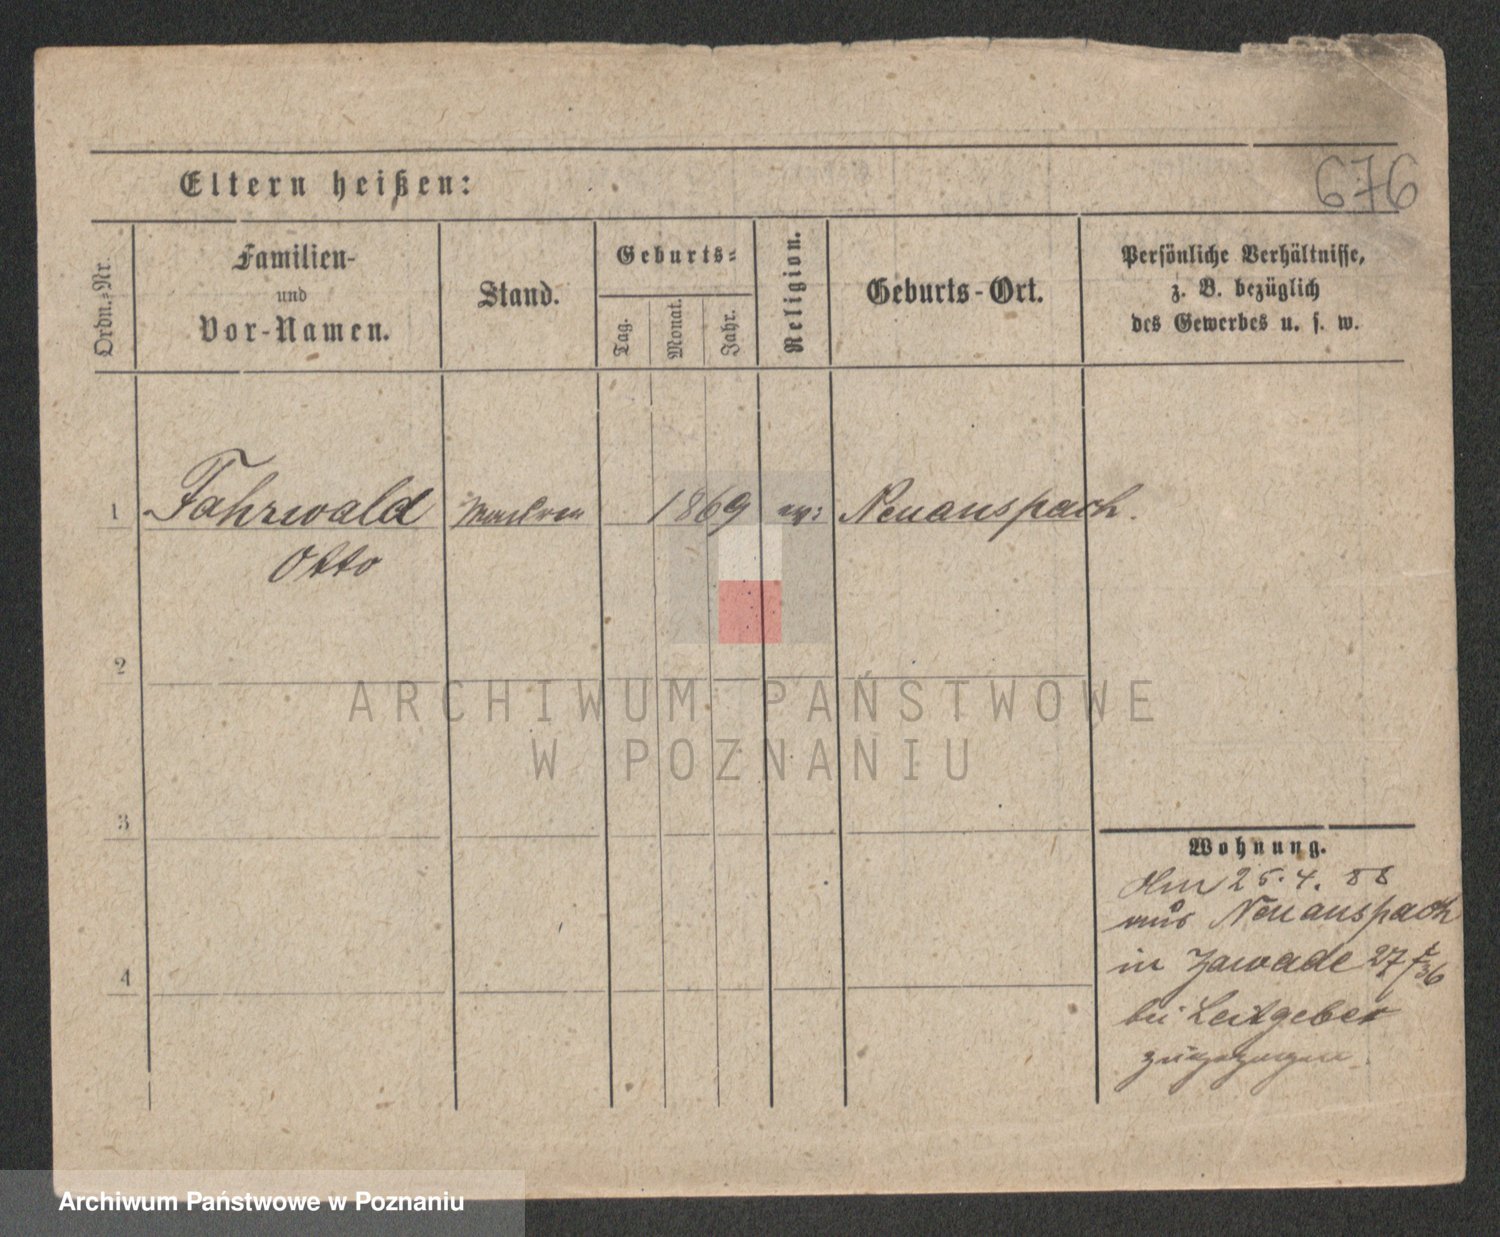 676
Eltern heißen:
Ordn.-Nr.
Familien-
und
Vor-Namen.
Stand.
Geburts-
Tag.
Monat.
Jahr.
Religion.
Geburts-Ort.
Persönliche Verhältnisse,
z. B. bezüglich
des Gewerbes u. s. w.
1 Fahrwald 1869 Neuanspach.
Otto
2
3
4
Wohnung.
Am 25.4.88
aus Neuanspach
in Zawade 27
bei Leitgeber
zugezogen.
ARCHIWUM PAŃSTWOWE
W POZNANIU
Archiwum Państwowe w Poznaniu